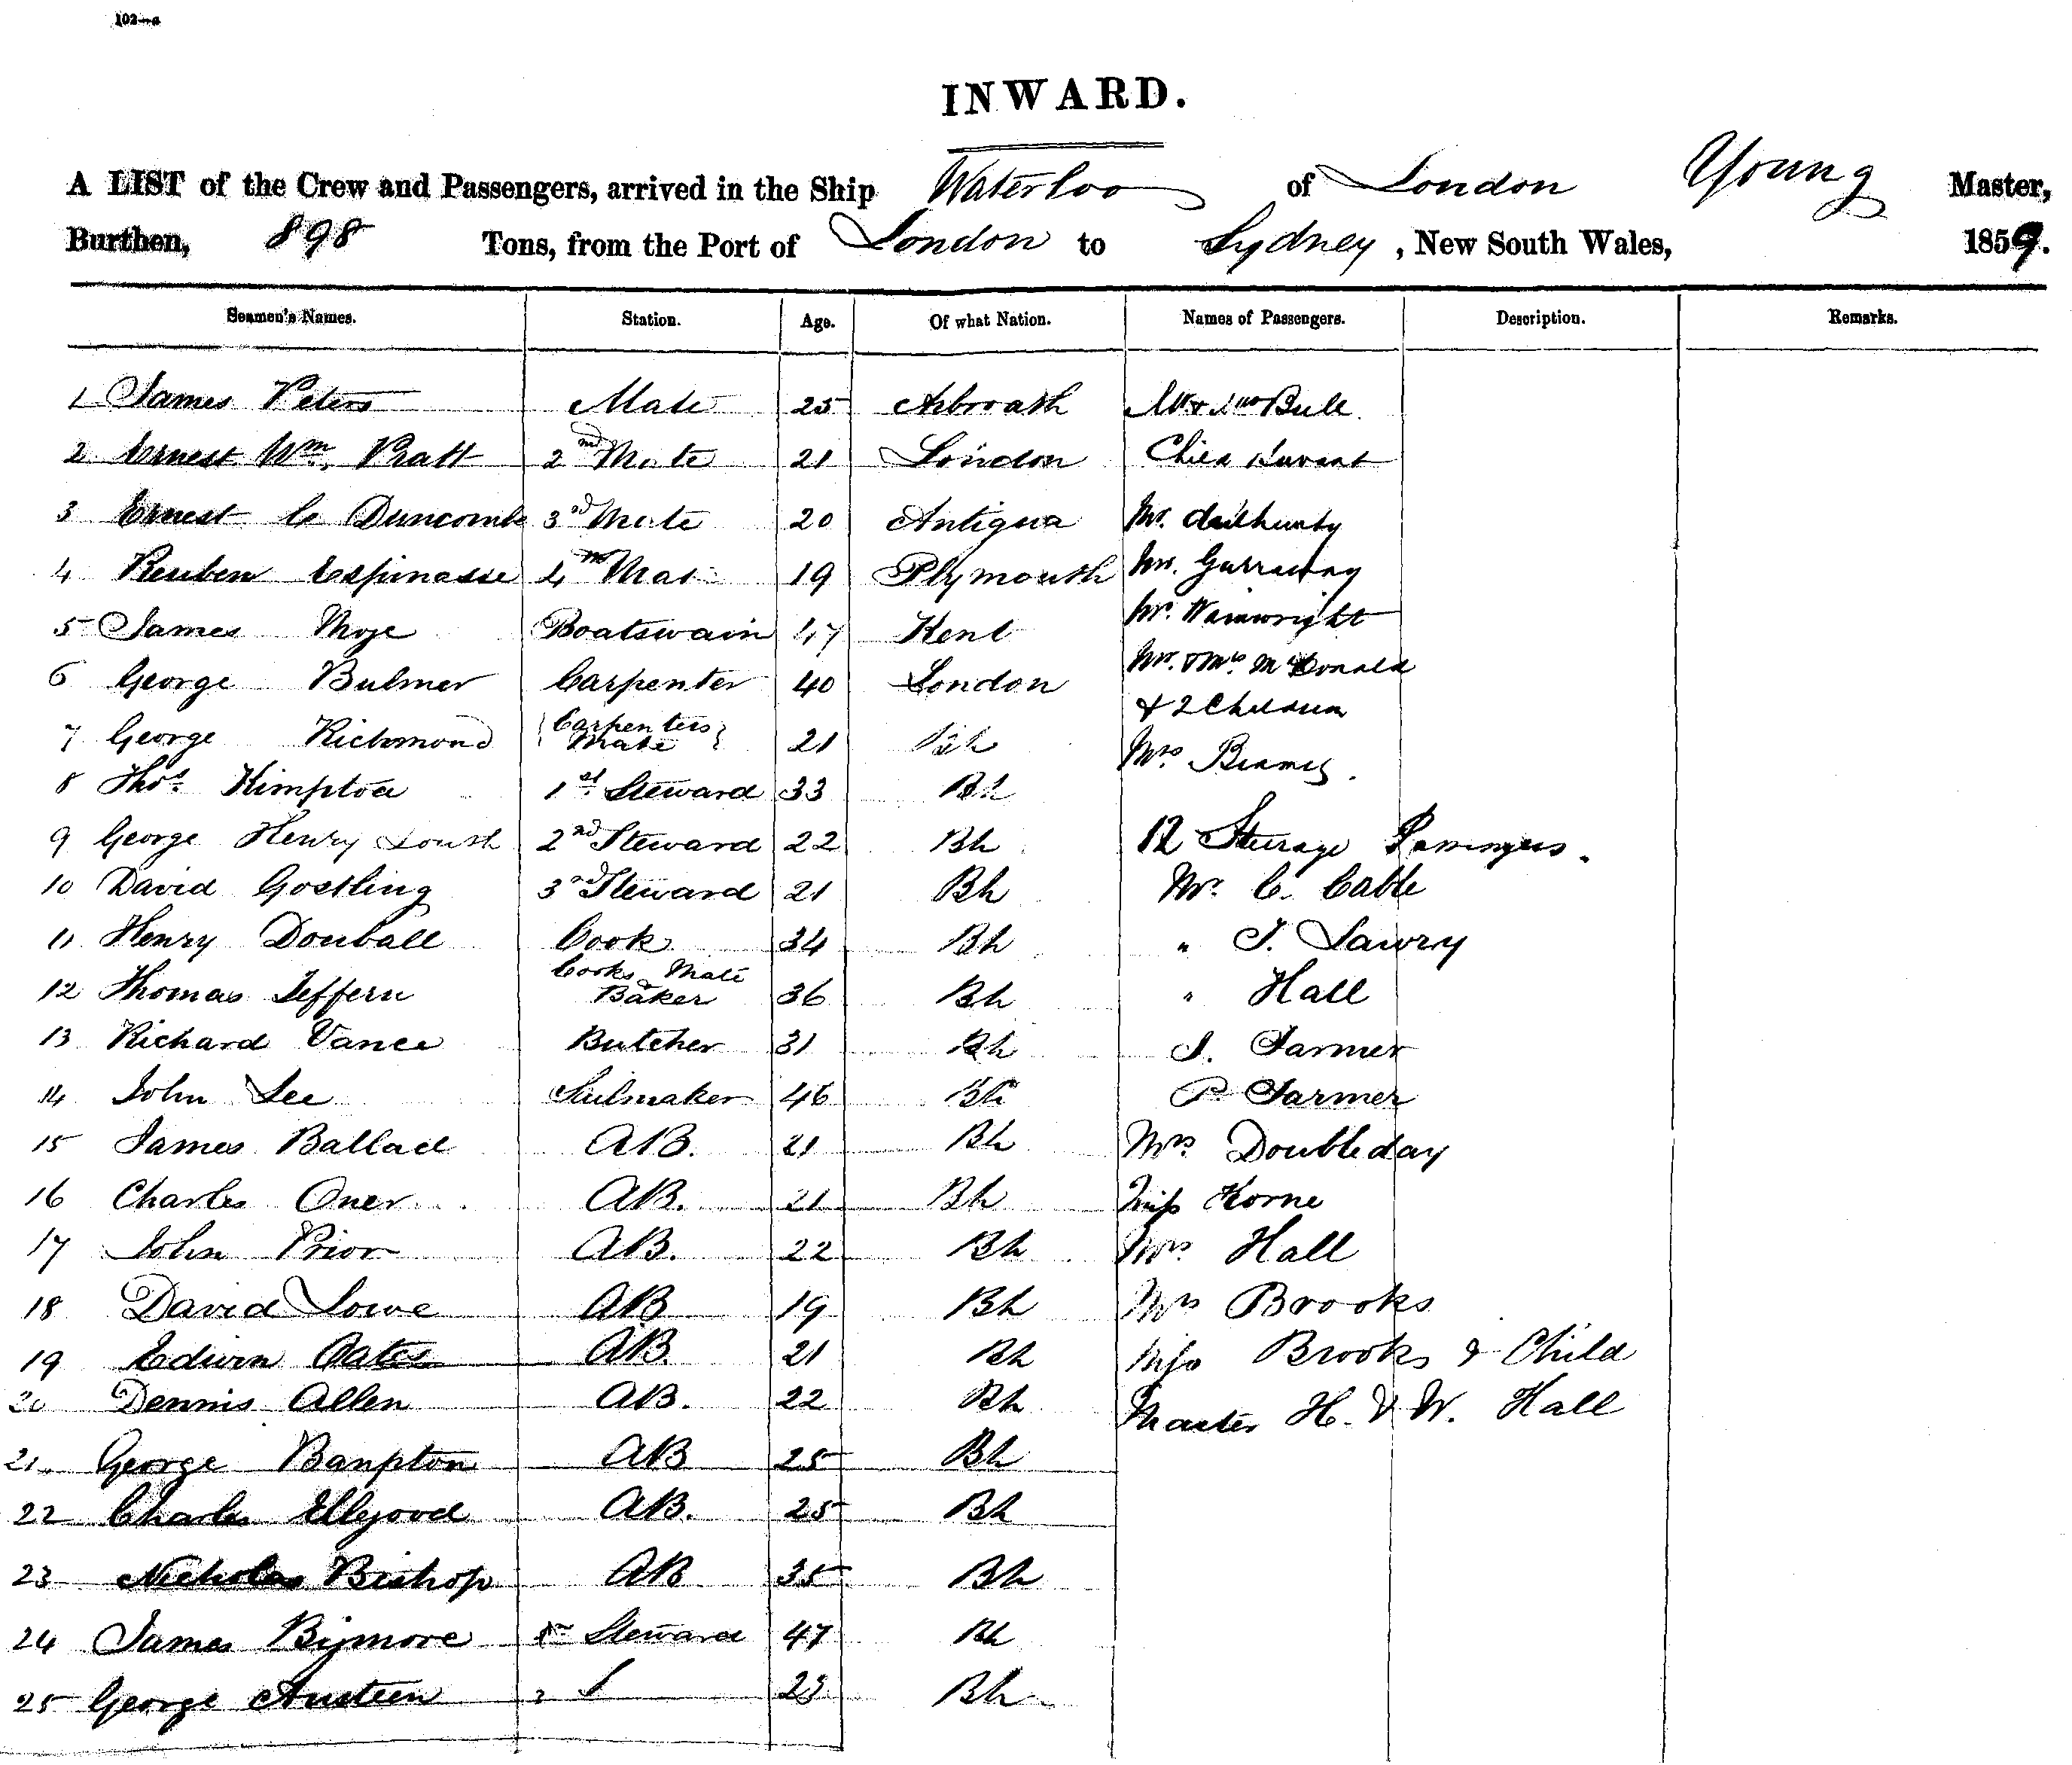 102—a
INWARD.
A LIST of the Crew and Passengers, arrived in the Ship Waterloo of London Young Master,
Burthen, 898 Tons, from the Port of London to Sydney, New South Wales, 1859.
Seamen's Names. Station. Age. Of what Nation. Names of Passengers. Description. Remarks.
1 James Peters Mate 25 Arbroath Mr & Mrs Bull.
2 Ernest Wm. Pratt 2nd Mate 21 London
3 Ernest C Duncombe 3rd Mate 20 Antigua Mr.
4 Reuben Espinasse 4th Mat 19 Plymouth Mr. Garraway
5 James Moje Boatswain 47 Kent Mr. Wainwright
6 George Bulmer Carpenter 40 London Mr. & Mrs. McDonald
& 2 Children
7 George Richmond Carpenters Mate 21 Bh Mrs
8 Thos. Kimpton 1st Steward 33 Bh
9 George Henry 2nd Steward 22 Bh 12 Steerage Passengers.
10 David Gostling 3rd Steward 21 Bh Mr. C. Cable
11 Henry Douball Cook 34 Bh " J. Lawry
12 Thomas Jeffern Cooks Mate & Baker 36 Bh " Hall
13 Richard Vance Butcher 31 Bh J. Farmer
14 John Lee Sailmaker 46 Bh P. Farmer
15 James Ballad AB. 21 Bh Mrs. Doubleday
16 Charles Oner AB. 21 Bh Miss Horne
17 John Prior AB. 22 Bh Mrs Hall
18 David Lowe AB 19 Bh Mrs Brooks
19 Edwin Oates AB. 21 Bh Miss Brooks & Child
20 Dennis Allen AB. 22 Bh Master H. & W. Hall
21 George Banpton AB 25 Bh
22 Charles Ellgood AB. 25 Bh
23 Nicholas Bishop AB 35 Bh
24 James Bijmore Steward 47 Bh
25 George Austeen 23 Bh